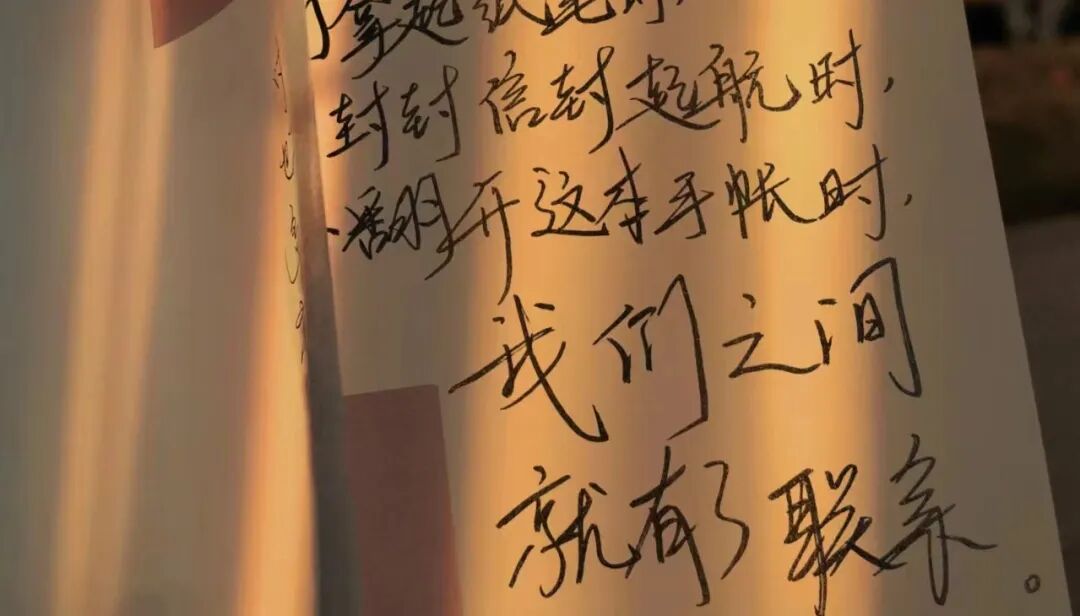 拿起纸笔时,
封封信封起航时,
翻开这本手帐时,
我们之间
就有了联系。